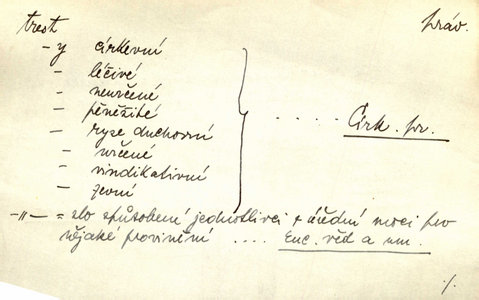 trest práv.
-y církevní
- léčivé
- neurčené
- peněžité . . . . . Círk. pr.
- ryze duchovní
- určené
- vindikativní
- zevní
-"- = zlo způsobené jednotlivci z úřední moci pro
nějaké provinění .... Enc. věd a um.
./.